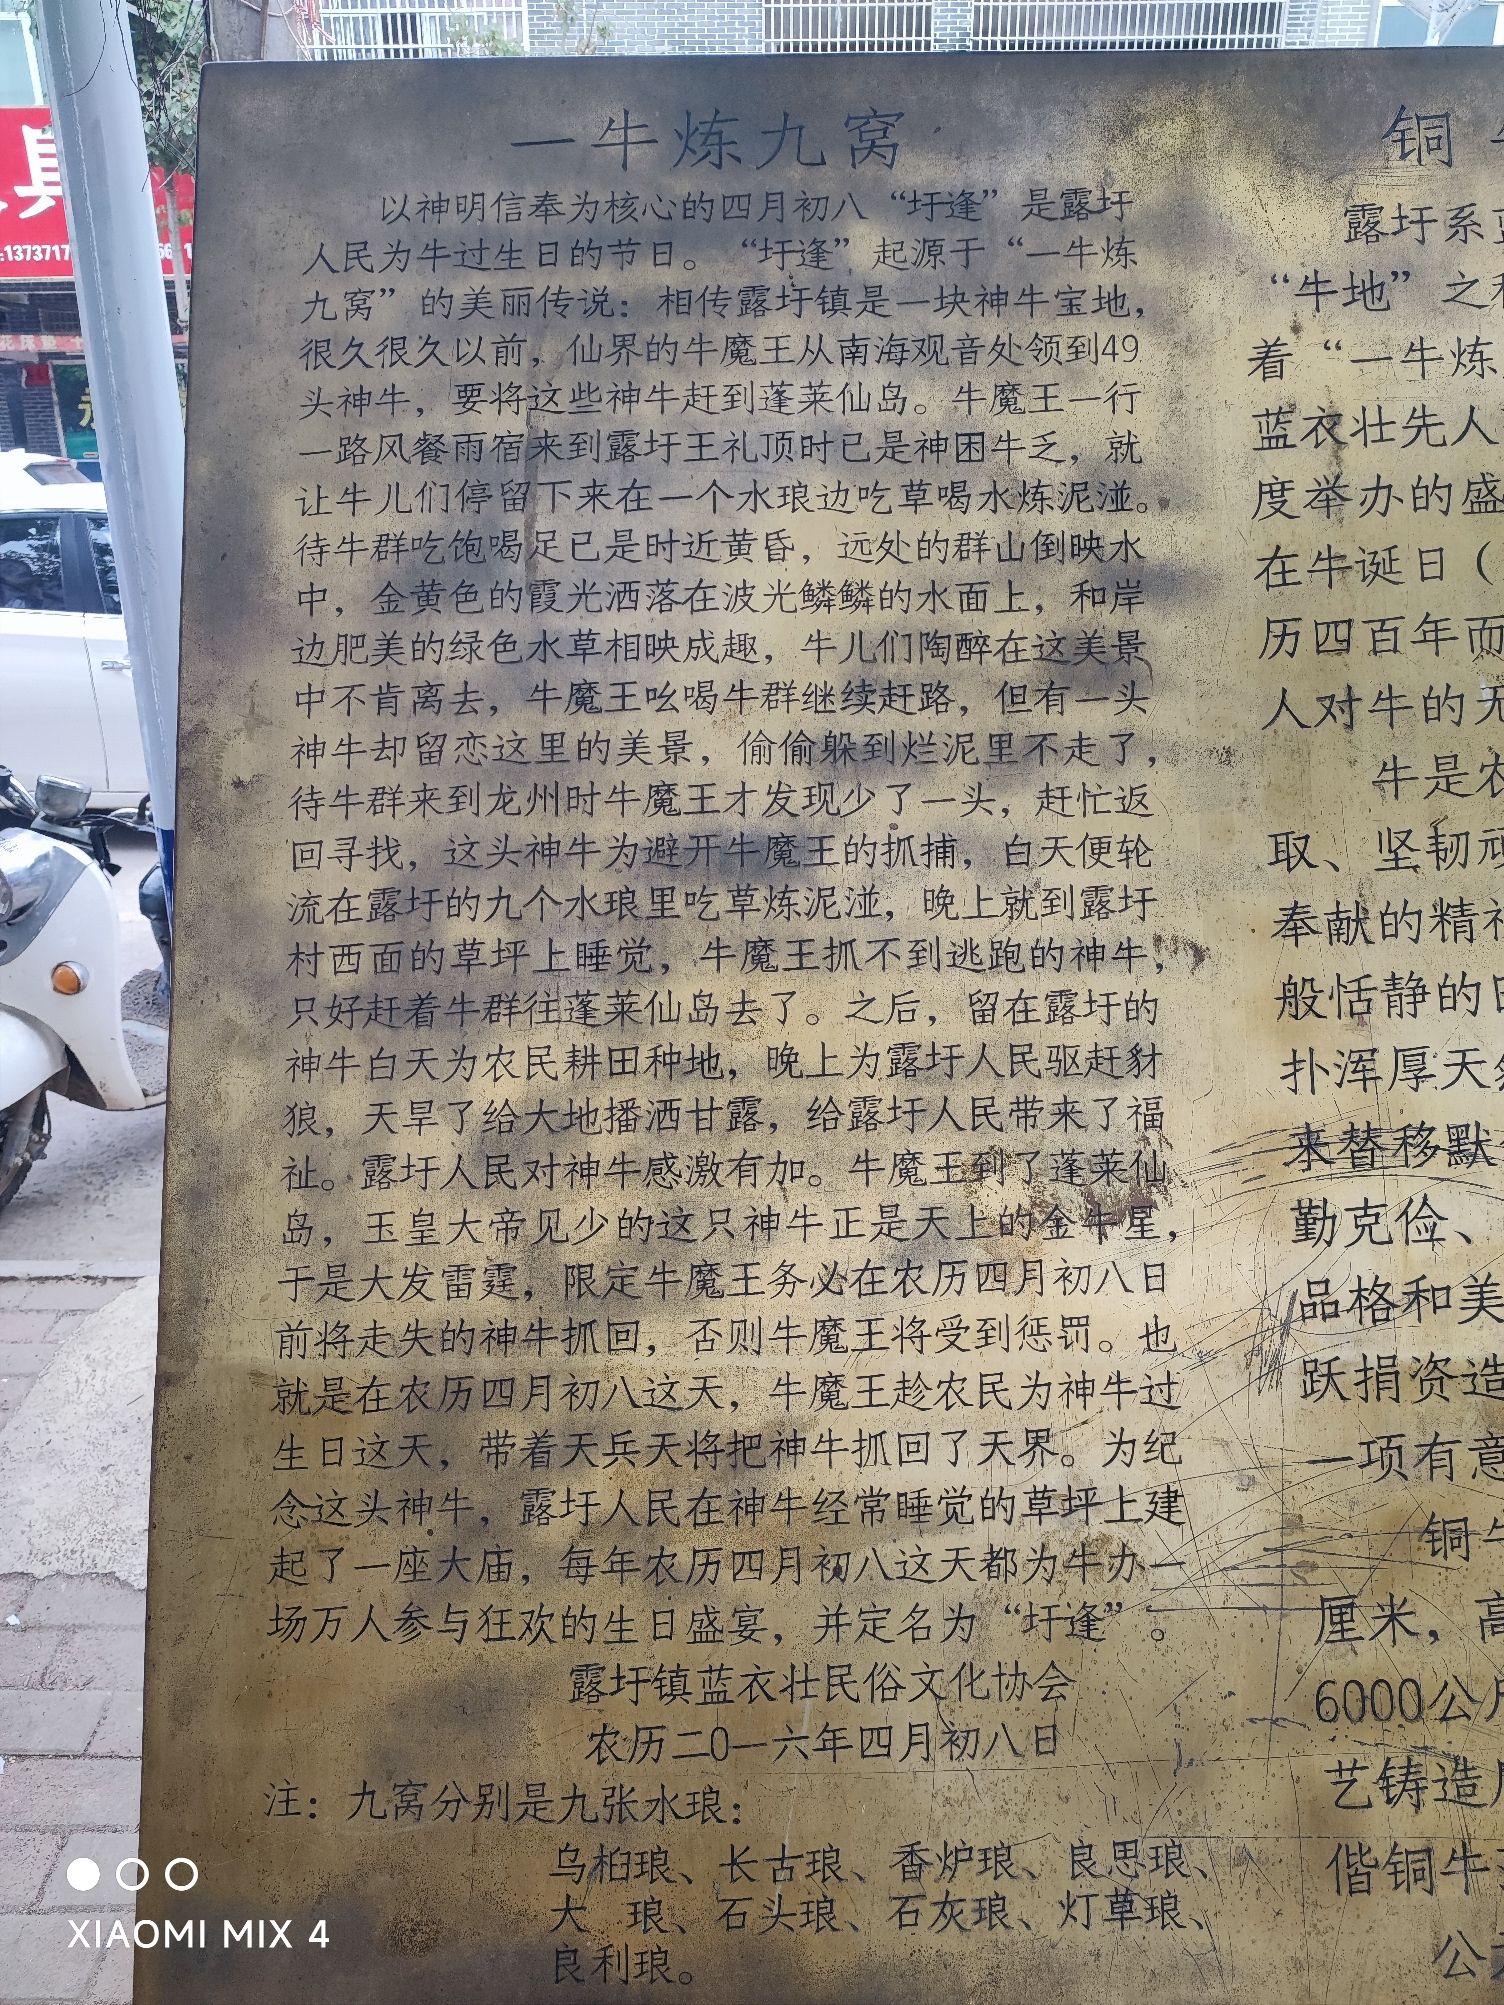 一牛炼九窝
以神明信奉为核心的四月初八“圩逢”是露圩
人民为牛过生日的节日。“圩逢”起源于“一牛炼
九窝”的美丽传说：相传露圩镇是一块神牛宝地，
很久很久以前，仙界的牛魔王从南海观音处领到49
头神牛，要将这些神牛赶到蓬莱仙岛。牛魔王一行
一路风餐雨宿来到露圩王礼顶时已是神困牛乏，就
让牛儿们停留下来在一个水琅边吃草喝水炼泥湴。
待牛群吃饱喝足已是时近黄昏，远处的群山倒映水
中，金黄色的霞光洒落在波光鳞鳞的水面上，和岸
边肥美的绿色水草相映成趣，牛儿们陶醉在这美景
中不肯离去，牛魔王吆喝牛群继续赶路，但有一头
神牛却留恋这里的美景，偷偷躲到烂泥里不走了，
待牛群来到龙州时牛魔王才发现少了一头，赶忙返
回寻找，这头神牛为避开牛魔王的抓捕，白天便轮
流在露圩的九个水琅里吃草炼泥湴，晚上就到露圩
村西面的草坪上睡觉，牛魔王抓不到逃跑的神牛，
只好赶着牛群往蓬莱仙岛去了。之后，留在露圩的
神牛白天为农民耕田种地，晚上为露圩人民驱赶豺
狼，天旱了给大地播洒甘露，给露圩人民带来了福
祉。露圩人民对神牛感激有加。牛魔王到了蓬莱仙
岛，玉皇大帝见少的这只神牛正是天上的金牛星，
于是大发雷霆，限定牛魔王务必在农历四月初八日
前将走失的神牛抓回，否则牛魔王将受到惩罚。也
就是在农历四月初八这天，牛魔王趁农民为神牛过
生日这天，带着天兵天将把神牛抓回了天界。为纪
念这头神牛，露圩人民在神牛经常睡觉的草坪上建
起了一座大庙，每年农历四月初八这天都为牛办一
场万人参与狂欢的生日盛宴，并定名为“圩逢”。
露圩镇蓝衣壮民俗文化协会
农历二0一六年四月初八日
注：九窝分别是九张水琅：
乌桕琅、长古琅、香炉琅、良思琅、
大 琅、石头琅、石灰琅、灯草琅、
良利琅。
铜
露圩系
“牛地”之
着“一牛炼
蓝衣壮先人
度举办的盛
在牛诞日（
历四百年而
人对牛的无
牛是农
取、坚韧顽
奉献的精神
般恬静的
扑浑厚天
来替移默
勤克俭、
品格和美
跃捐资造
一项有意
铜牛
厘米，高
6000公斤
艺铸造
偕铜牛
公
具
:1373717
XIAOMI MIX 4